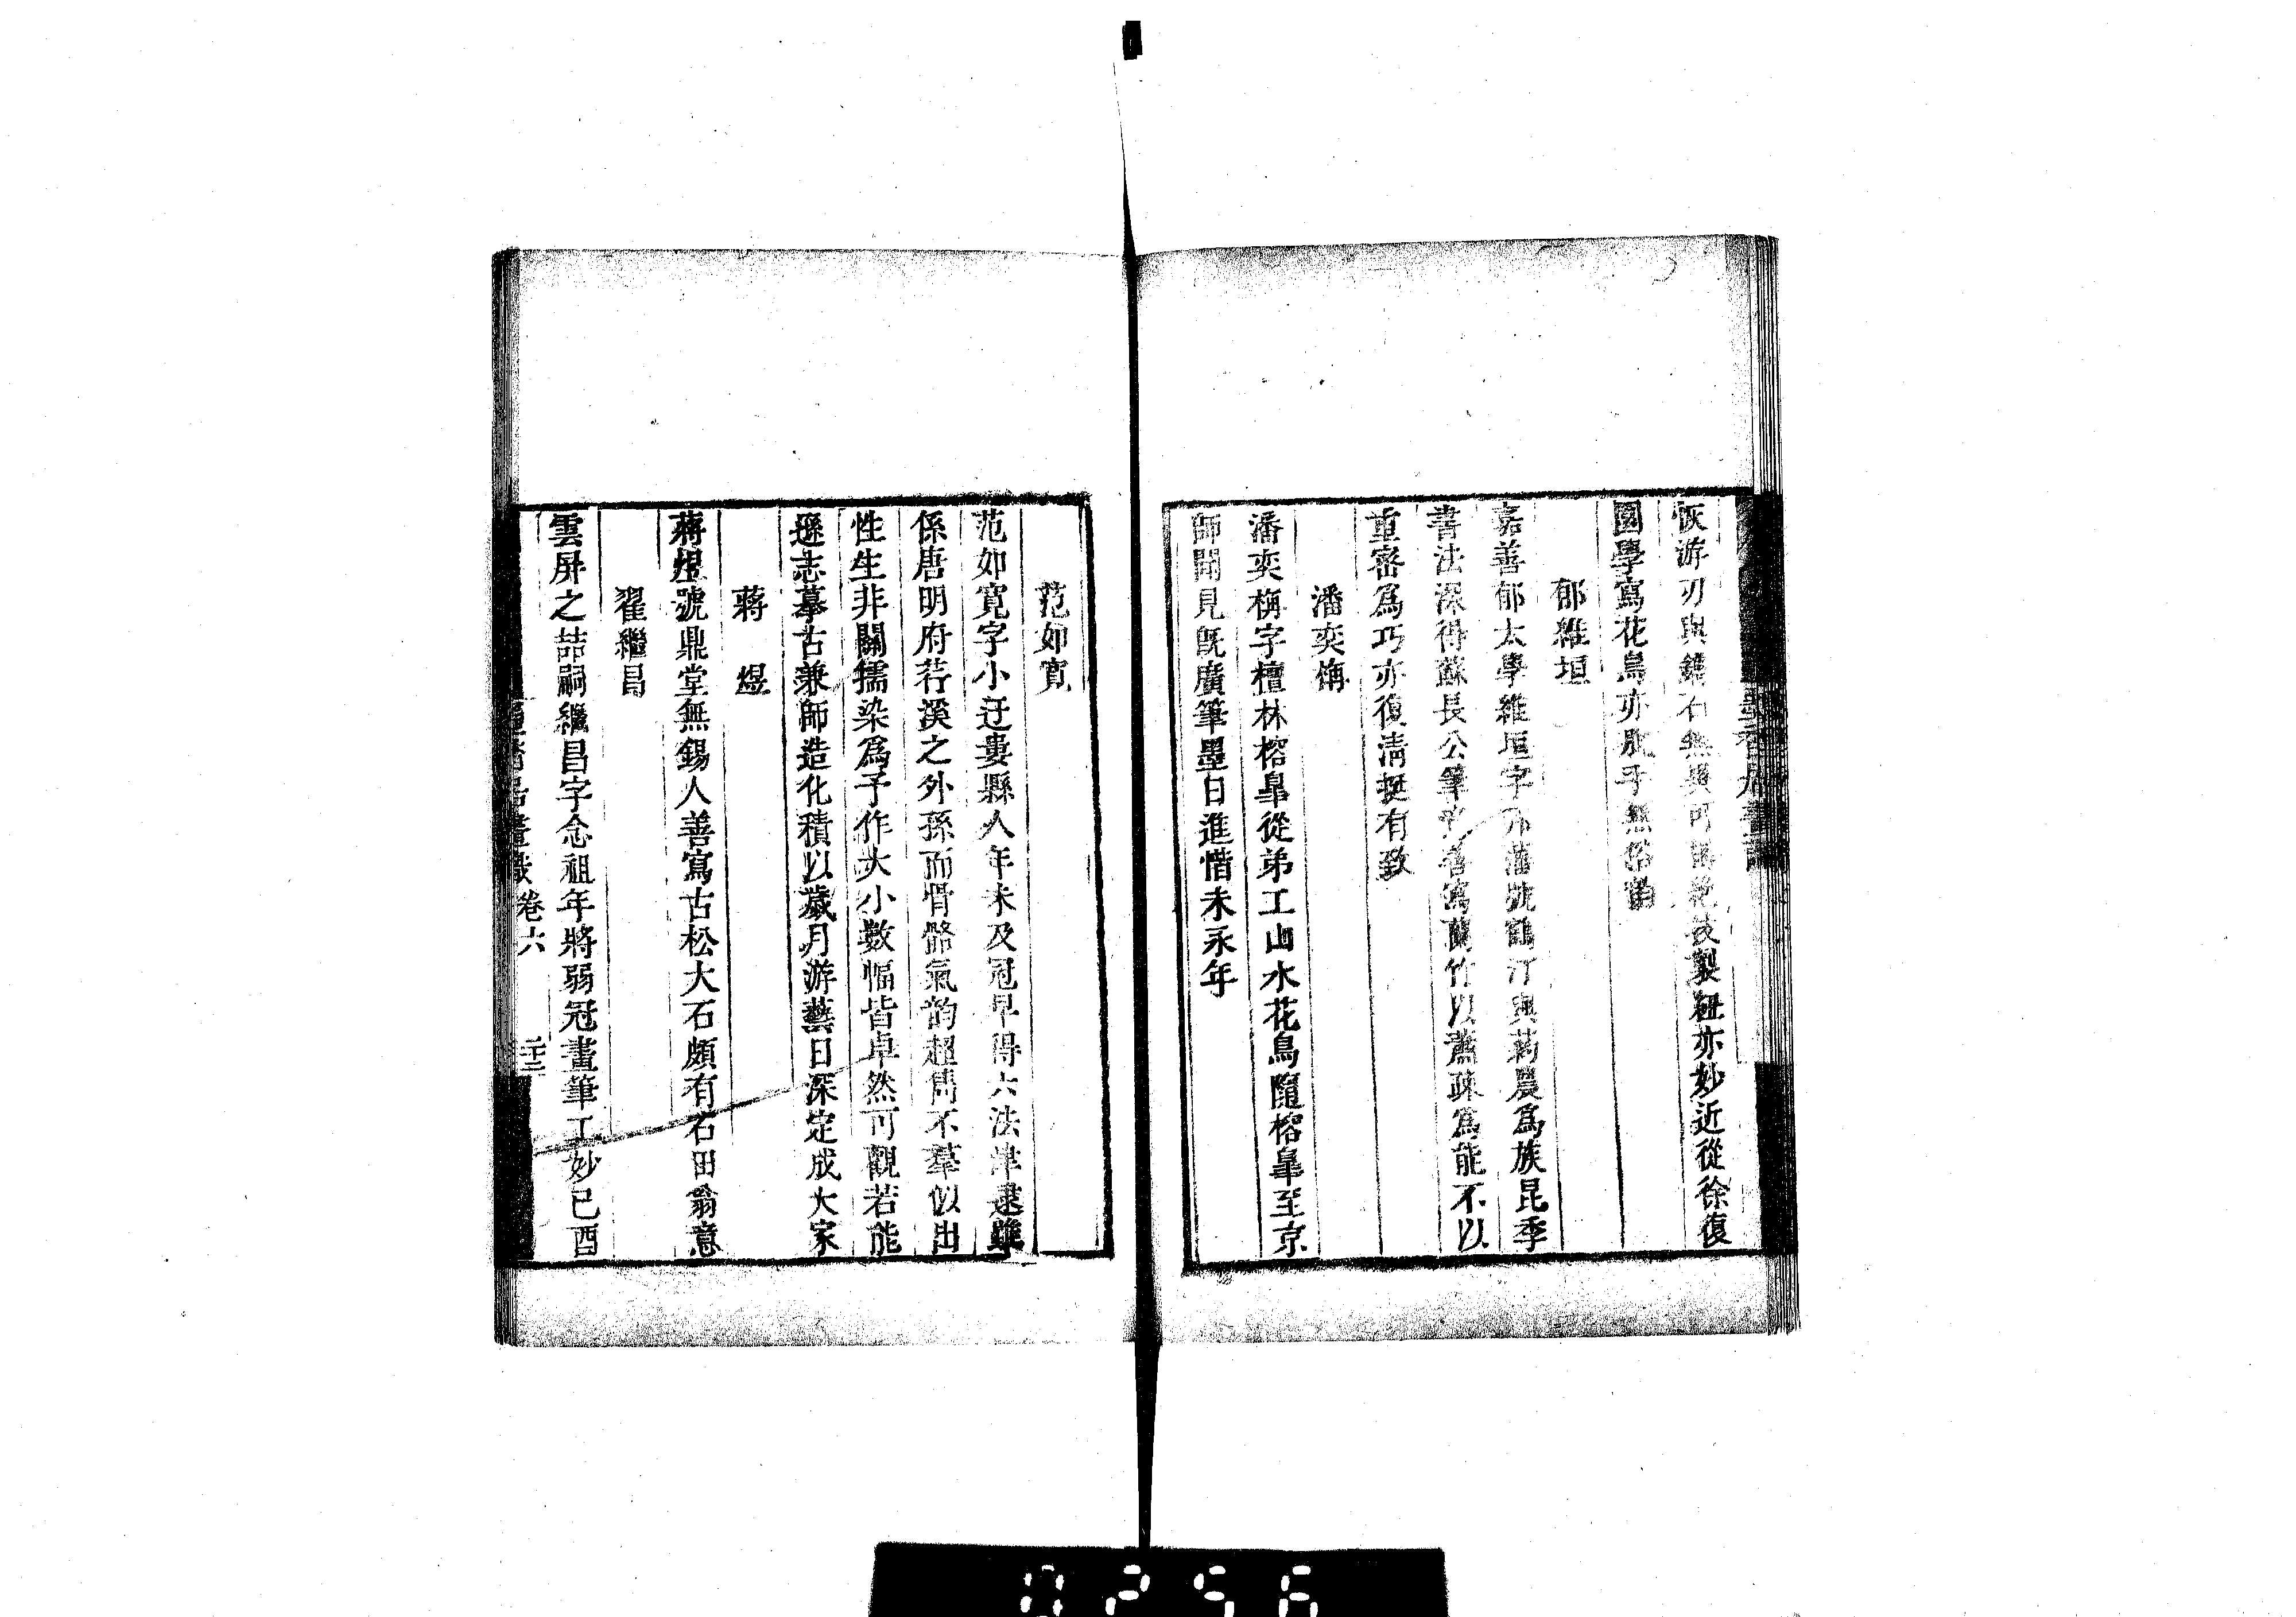 恢游刃與鐫石無異可稱絶技製鈕亦妙近從徐復
園學寫花鳥亦脫手無俗韵
郁維垣
嘉善郁太學維垣字介藩號鶴汀與莉農爲族昆季
書法深得蘇長公筆意善寫蘭竹以蕭疎爲能不以
重密爲巧亦復清挺有致
潘奕䌽
潘奕字檀林榕臯從弟工山水花鳥隨榕臯至京
師聞見旣廣筆墨日進惜未永年
范如寛
范如寛字小迂婁縣人年未及冠早得六法津逮雖
係唐明府荇溪之外孫而骨骼氣韵超雋不羣似出
性生非關擩染爲予作大小數幅皆卓然可觀若能
遜志摹古兼師造化積以歲月游藝日深定成大家
蔣煜
蔣煜號鼎堂無錫人善寫古松大石頗有石田翁意
翟繼昌
雲屏之喆嗣繼昌字念祖年將弱冠畫筆工妙已酉
墨香居畫識卷六
墨香居畫識
0256